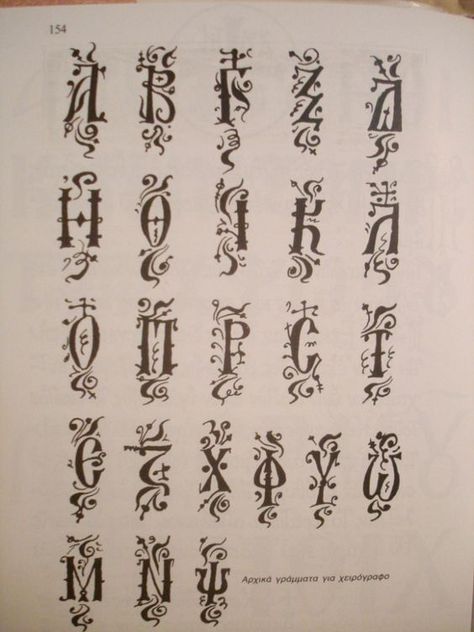 154
Α Β Γ Ζ Δ
Η Θ Ι Κ Λ
Ο Π Ρ Σ Τ
Ε Ξ Χ Φ Υ Ω
Μ Ν Ψ Αρχικά γράμματα για χειρόγραφα